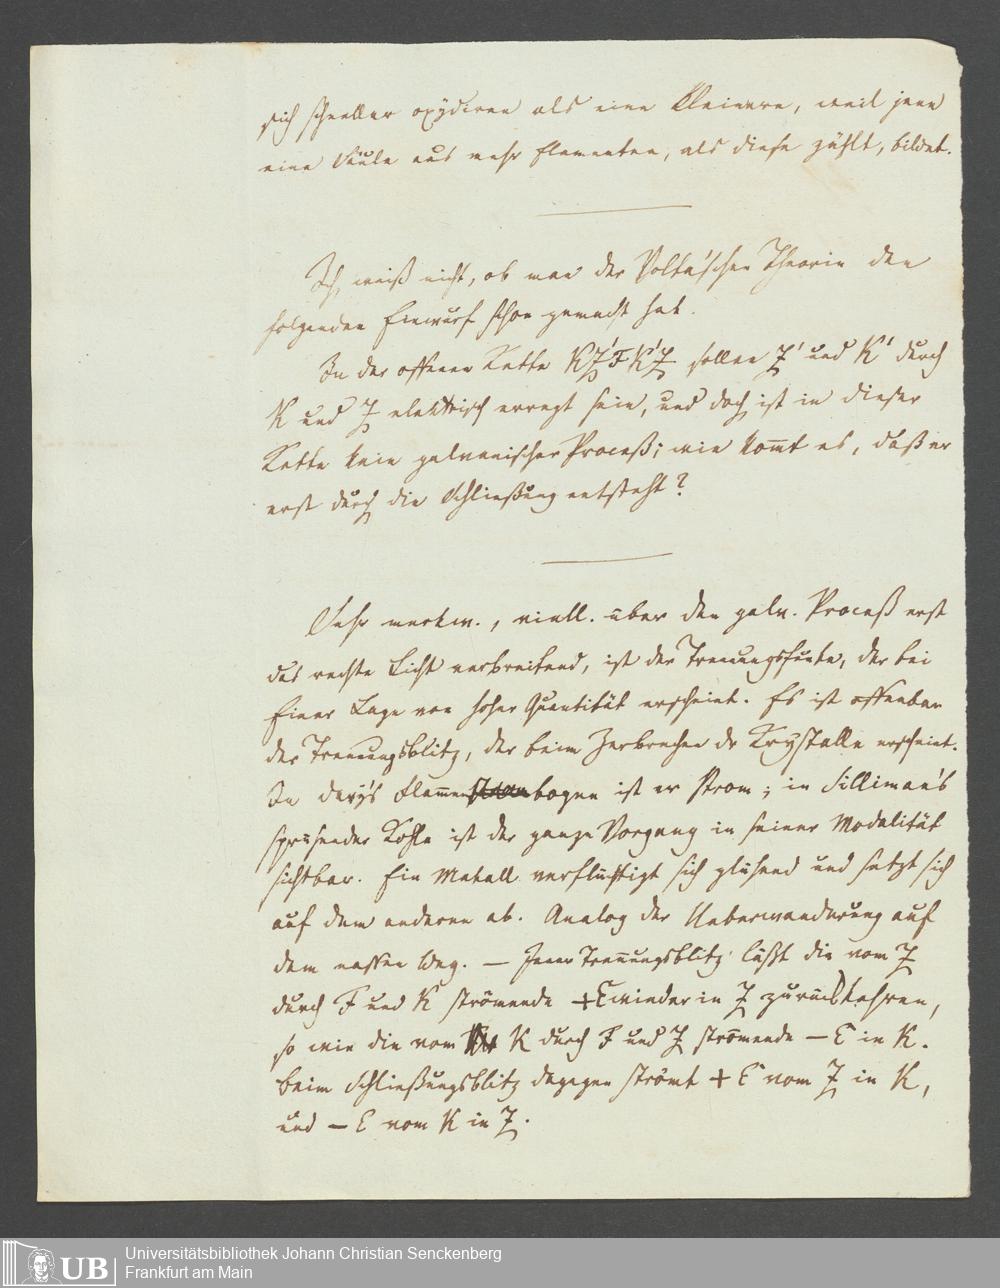 sich schneller oxydiren als eine kleinere, weil jene
eine Säule aus mehr Elementen, als diese zählt, bildet.
Ich weiß nicht, ob man der Volta'schen Theorie den
folgenden Einwurf schon gemacht hat.
In der offenen Kette K Z' F K' Z sollen Z' und K' durch
K und Z elektrisch erregt sein, und doch ist in dieser
Kette kein galvanischer Proceß; wie kom̅t es, daß er
erst durch die Schließung entsteht?
Sehr merkw., viell. über den galv. Proceß erst
das rechte Licht verbreitend, ist der Trennungsfunke, der bei
Einer Lage von hoher Quantität erscheint. Es ist offenbar
der Trennungsblitz, der beim Zerbrechen der Krystalle erscheint.
In Davy's Flammenbogen ist er Strom; in Silliman's
sprühender Kohle ist der ganze Vorgang in seiner Modalität
sichtbar. Ein Metall verflüchtigt sich glühend und setzt sich
auf dem anderen ab. Analog der Ueberwanderung auf
dem nassen Weg. — Jener Trennungsblitz läßt die vom Z
durch F und K strömende + E wieder in Z zurückkehren,
so wie die vom K durch F und Z strömende — E in K.
beim Schließungsblitz dagegen strömt + E vom Z in K,
und — E vom K in Z.
Universitätsbibliothek Johann Christian Senckenberg
Frankfurt am Main
UB